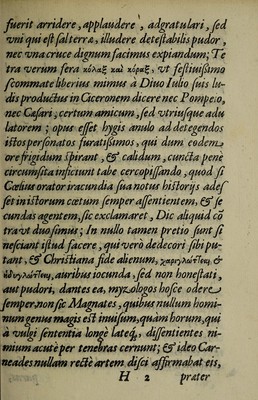 fuerit arridere, applaudere, adgratulari, sed
vni qui est sal terra, illudere detestabilis pudor,
nec vna cruce dignum facimus expiandum; Te
tra verum fera κόλαξ καὶ κόραξ, vt festiuissimo
scommate liberius mimus à Diuo Iulio suis lu-
dis productus in Ciceronem dicere nec Pompeio,
nec Cæsari, certum amicum, sed vtriusque adu
latorem; opus esset hygis anulo ad detegendos
istos personatos furatissimos, qui dum eodem
ore frigidum spirant, & calidum, cuncta penè
circumsita inficiunt tabe cercopissando, quod si
Cœlius orator iracundia sua notus historys ades
set in istorum cœtum semper assentientem, & se
cundas agentem, sic exclamaret, Dic aliquid cō
tra vt duo simus; In nullo tamen pretio sunt si
nesciant istud facere, qui verò dedecori sibi pu-
tant, & Christiana fide alienum, &
auribus iocunda, sed non honestati,
aut pudori, dantes ea, myxologos hosce odere
semper non sic Magnates, quibus nullum homi-
num genus magis est inuisum, quàm horum, qui
à vulgi sententia longè lateq, dissentientes ni-
mium acutè per tenebras cernunt; & ideo Car-
neades nullam rectè artem disci affirmabat eis,
H 2 præter